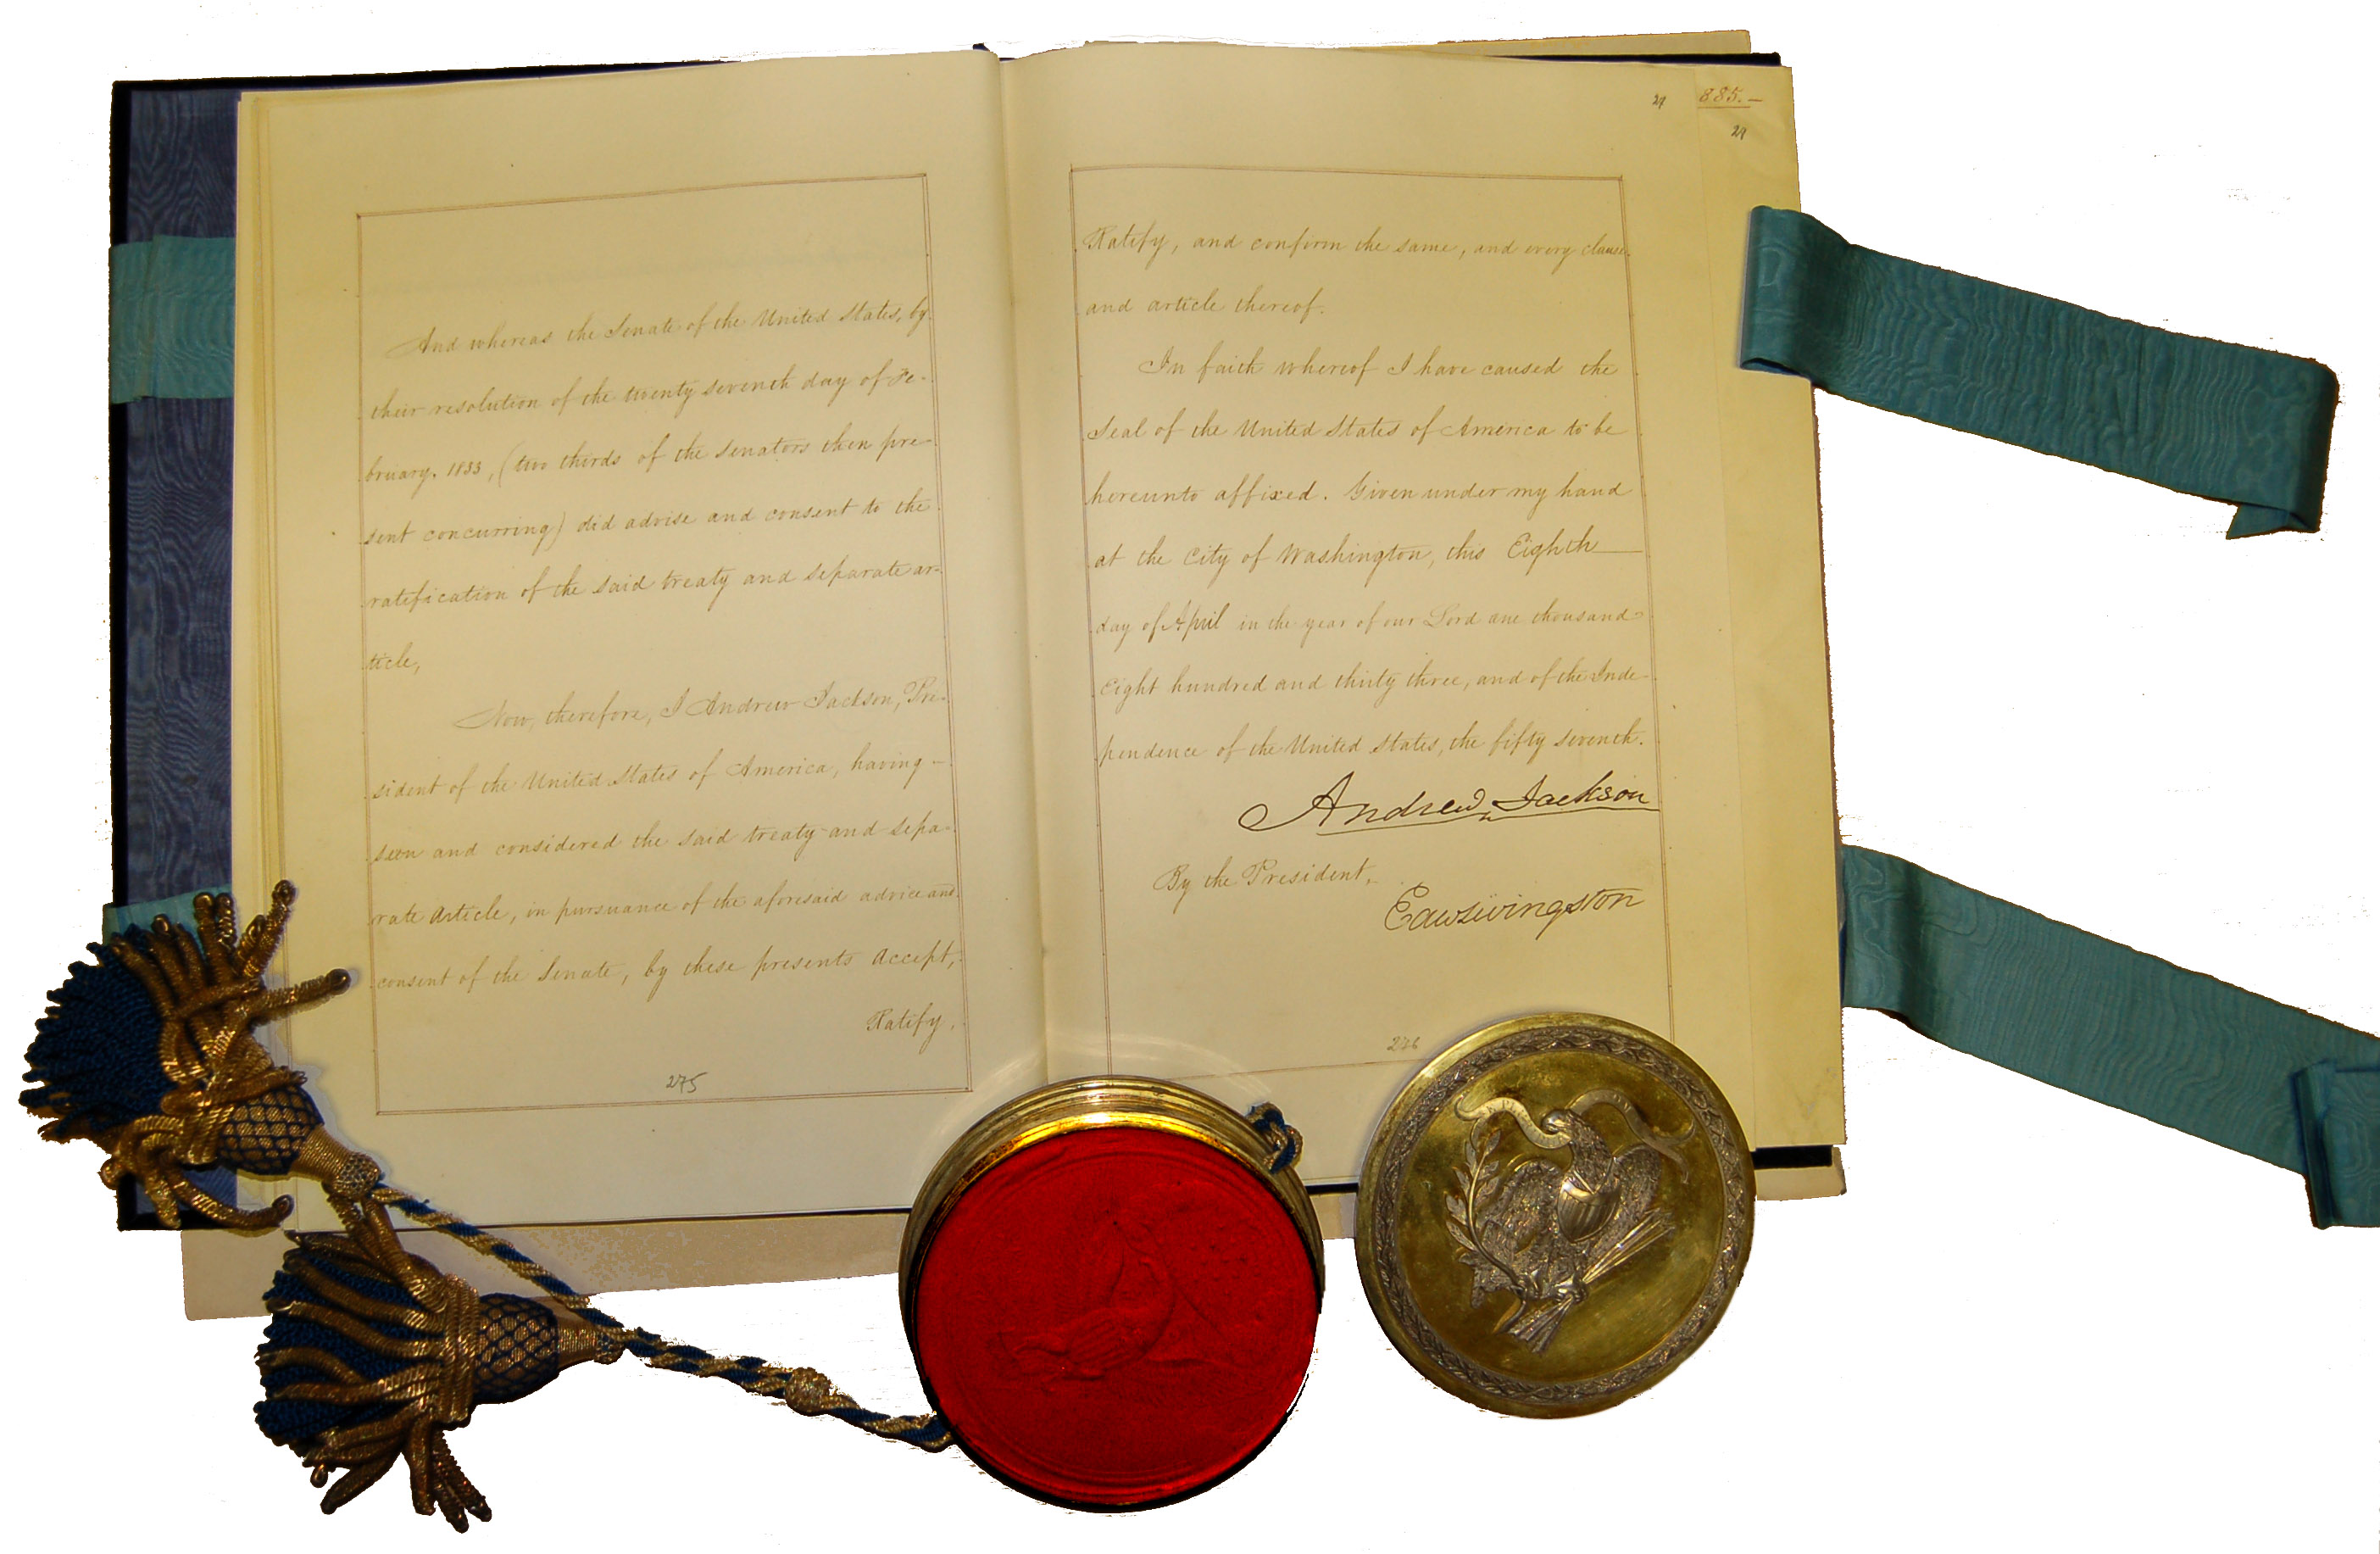 And whereas the Senate of the United States, by
their resolution of the twenty seventh day of Fe-
bruary. 1833, (two thirds of the Senators then pre-
sent concurring) did advise and consent to the
ratification of the said treaty and separate ar-
ticle,
Now, therefore, I Andrew Jackson, Pre-
sident of the United States of America, having -
seen and considered the said treaty and sepa-
rate Article, in pursuance of the aforesaid advice and
consent of the Senate, by these presents Accept,
Ratify,
275
29
885.-
29
Ratify, and confirm the same, and every clause
and article thereof.
In faith whereof I have caused the
Seal of the United States of America to be
hereunto affixed. Given under my hand
at the City of Washington, this Eighth
day of April in the year of our Lord one thousand
Eight hundred and thirty three, and of the Inde-
pendence of the United States, the fifty seventh.
Andrew Jackson
By the President,
Edw Livingston
276